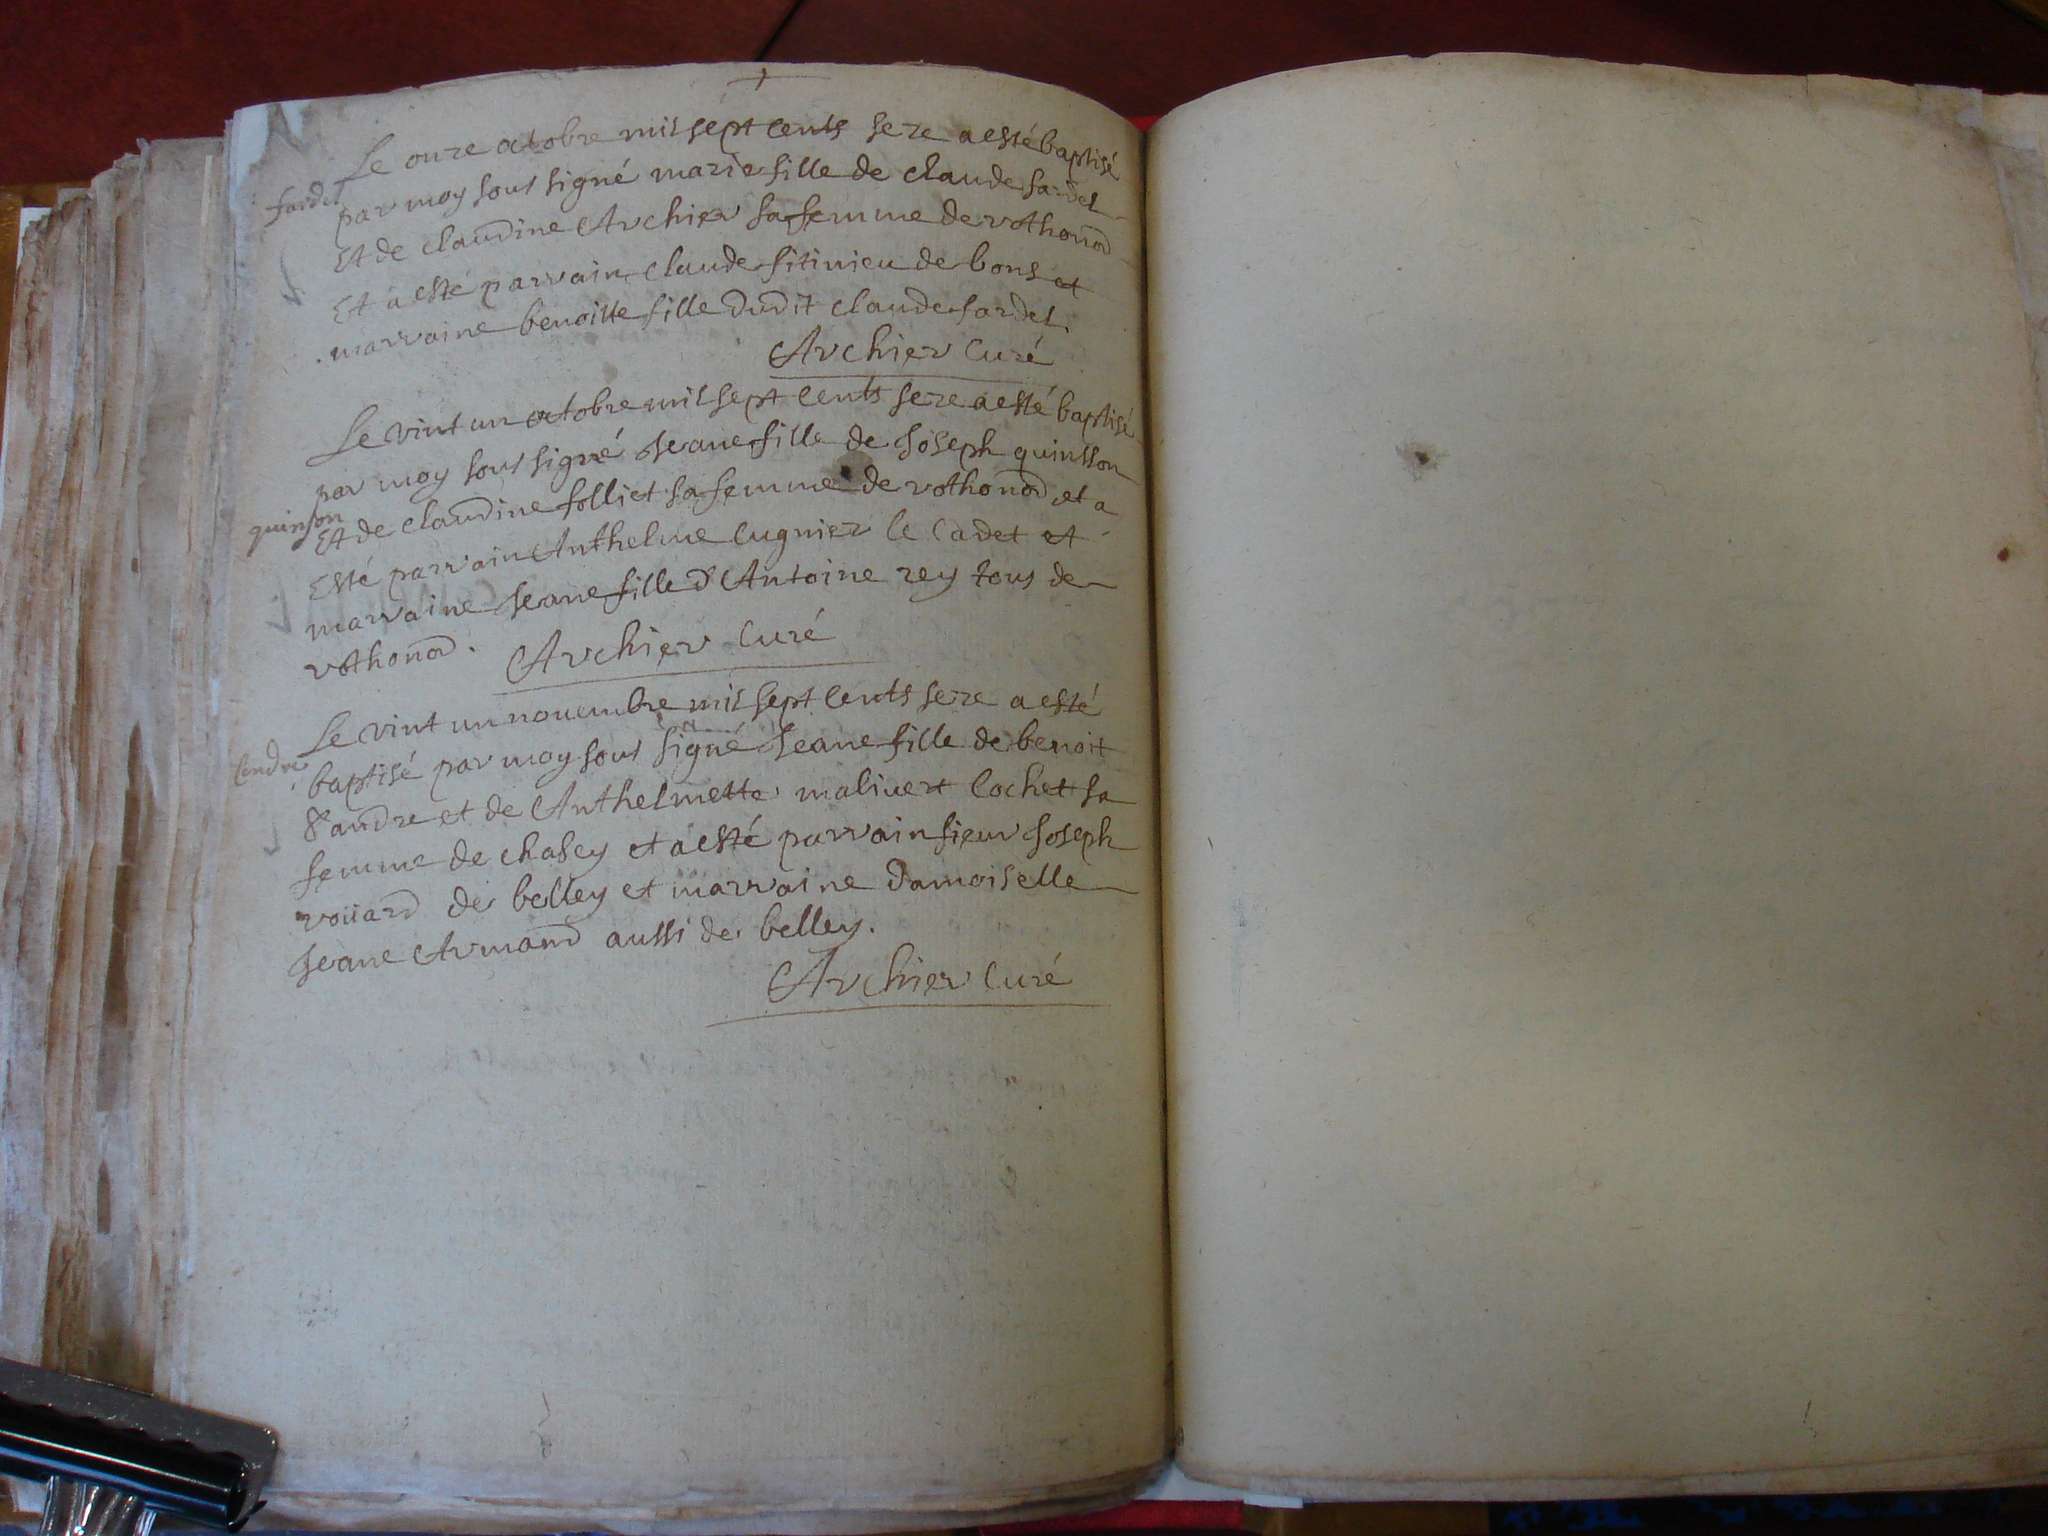 Le onze octobre mil sept cents seze a esté baptisé
fardel
par moy sous signé marie fille de claude fardel
Et de claudine Archier sa femme de vothonod
Et a esté parrain claude fitinieu de bons et
marraine benoitte fille dudit claude fardel.
Archier Curé
Le vint un octobre mil sept cents seze a esté baptisé
par moy sous signé Jeane fille de Joseph quinsson
quinson
Et de claudine folliet sa femme de vothonod et a
Esté parrain Anthelme Cugnier le Cadet et
marraine Jeane fille d'Antoine rey tous de
vothonod.
Archier Curé
Le vint un nouembre mil sept cents seze a esté
baptisé par moy sous signé Jeane fille de benoit
et de Anthelmette maliuert Cochet sa
femme de chasey et a esté parrain sieur Joseph
voüard de belley et marraine damoiselle
Jeane Armand aussi de belley.
Archier Curé